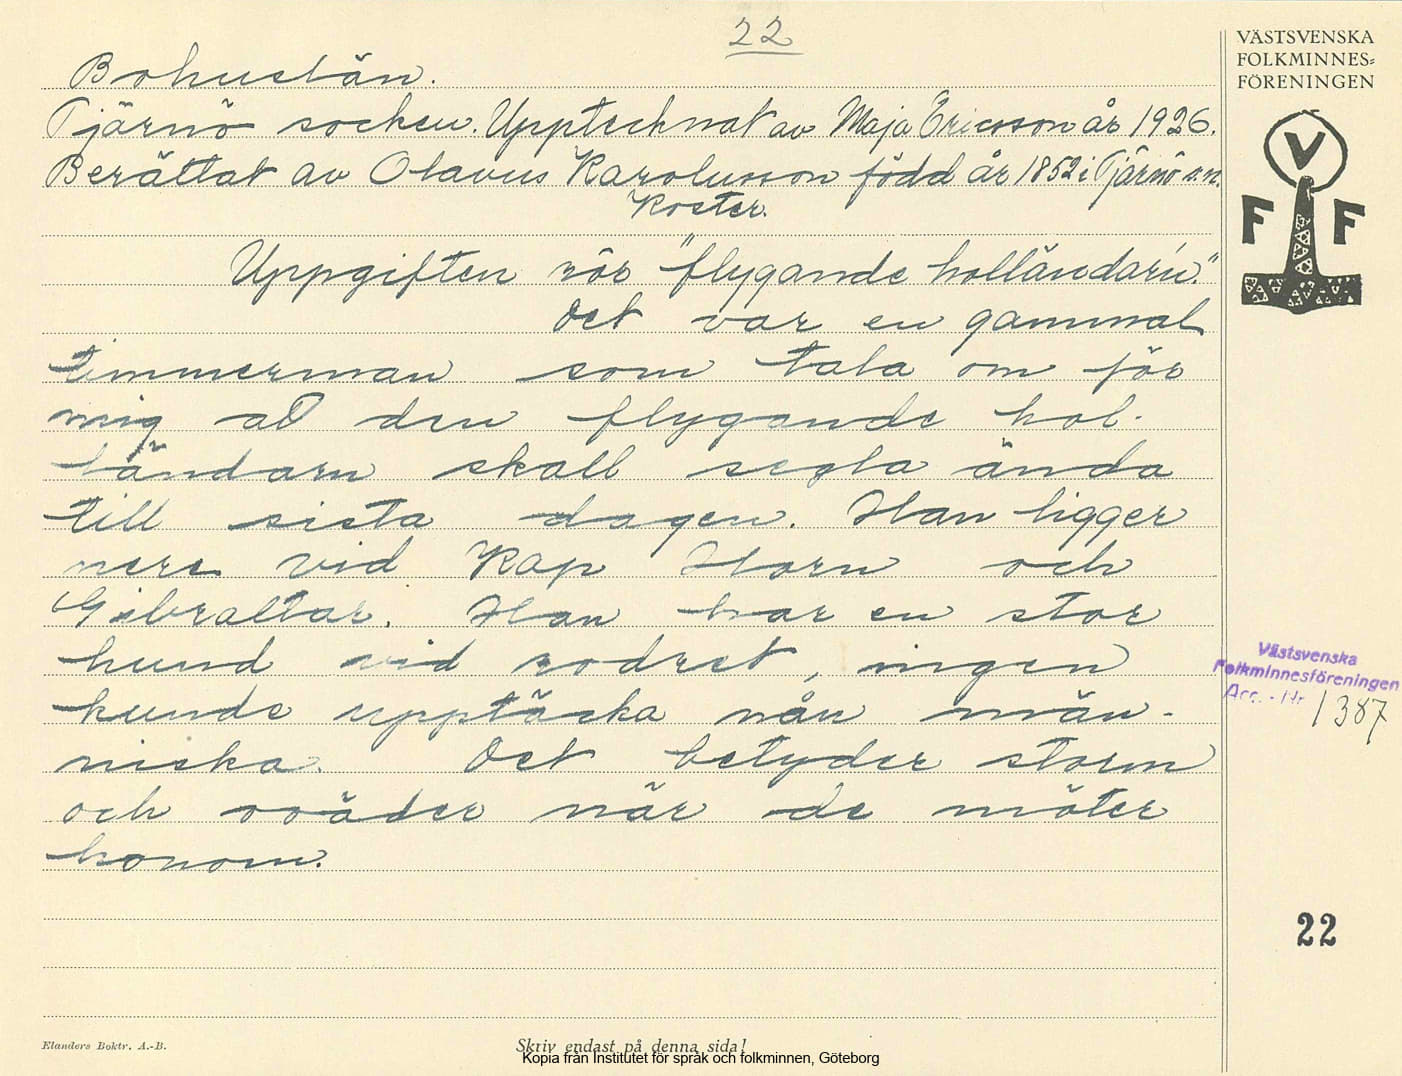 22
VÄSTSVENSKA
FOLKMINNES=
FÖRENINGEN
V
F F
Bohuslän.
Tjärnö socken. Upptecknat av Maja Ericsson år 1926.
Berättat av Olavus Karolusson född år 1852 i Tjärnö s.n.
Koster.
Uppgiften rör "flygande holländar'n."
Det var en gammal
timmerman som tala om för
mig att den flygande hol-
ländarn skall segla ända
till sista dagen. Han ligger
nere vid Kap Horn och
Gibraltar. Han har en stor
hund vid rodret, ingen
kunde upptäcka nån män-
niska. Det betyder storm
och oväder när de möter
honom.
Västsvenska
Folkminnesföreningen
Acc. - Nr 1387
22
Elanders Boktr. A.-B.
Skriv endast på denna sida!
Kopia från Institutet för språk och folkminnen, Göteborg